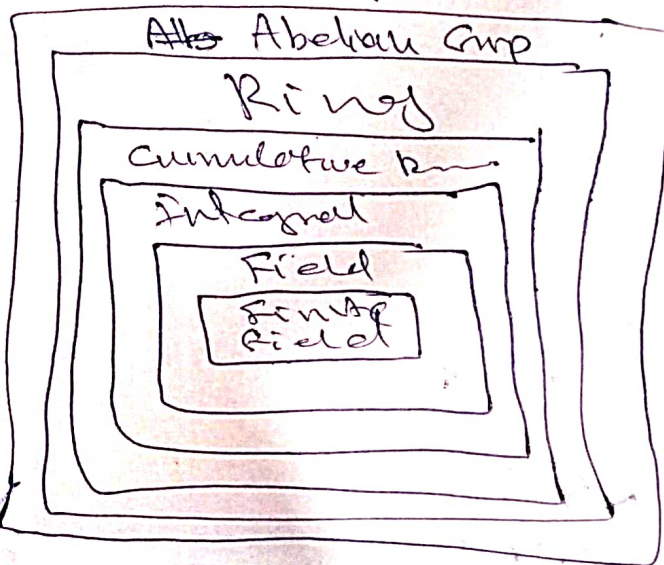 Abelian Grup
Ring
Cumulative
Integral
Field
Finite
Field